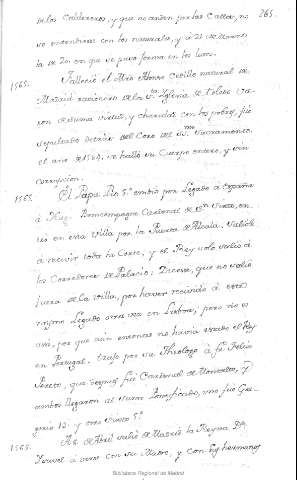 265.
de los Caldereros, y que no anden por las Calles, no
se encontraran con los naturales, y à 23 de
la de 20 en que se puso forma en los
1565. Fallecio el Mro Alonso Cedillo natural de
Madrid racionero de la Sta Yglesia de Toledo Va-
ron de suma virtud, y charidad con los pobres, fue
sepultado detras del Coro del SSmo Sacramento,
el año de 1584, se hallo su Cuerpo entero, y sin
corrupcion.
1565. El Papa Pio 5º embio por Legado a España
à Hugo Boncompagno Cardenal de Sn Sixto, en-
trò en esta Villa por la Puerta de Alcala, salióle
à recivir toda la Corte, y el Rey solo salio à
los Corredores de Palacio: Dicese, que no salio
fuera de la Villa, por haver recivido à este
mismo Legado otra vez en Lisboa; pero no es
asi, por que aun entonces no havia estado el Rey
en Portugal. trajo por su Theologo à fr Felix
Pereto, que despues fue Cardenal de Monealto, y
ambos llegaron al sumo Pontificado, uno fue Gre-
gorio 13. y otro Sixto 5º
1565. A de Abril salió de Madrid la Reyna Da
Ysavel à verse con su Madre, y con sus hermanos
Biblioteca Regional de Madrid